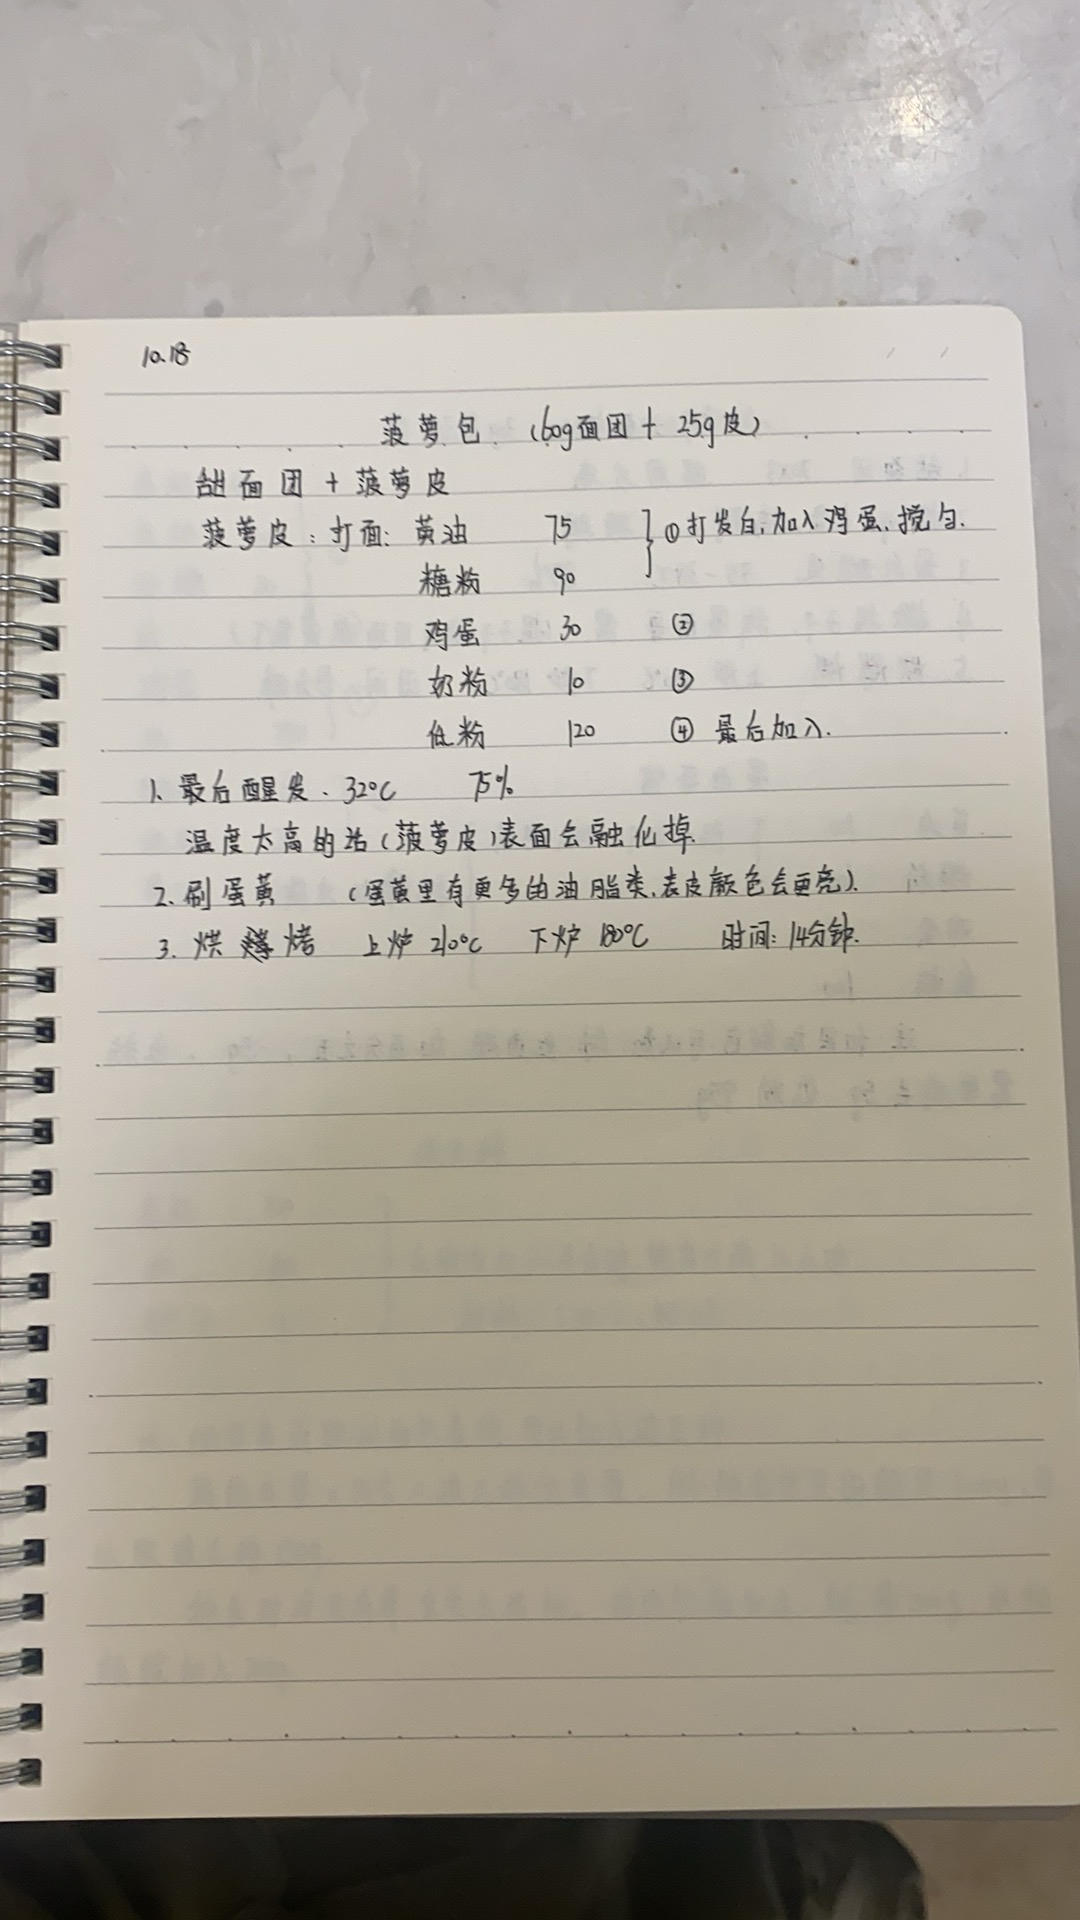 10.18
菠萝包 (60g面团+25g皮)
甜面团+菠萝皮
菠萝皮:打面:黄油 75 ①打发白,加入鸡蛋,搅匀.
糖粉 90
鸡蛋 30 ②
奶粉 10 ③
低粉 120 ④ 最后加入.
1. 最后醒发、32℃ 75%
温度太高的话(菠萝皮)表面会融化掉.
2. 刷蛋黄 (蛋黄里有更多的油脂类,表皮颜色会更亮).
3. 烘烤 上炉210℃ 下炉180℃ 时间:14分钟.